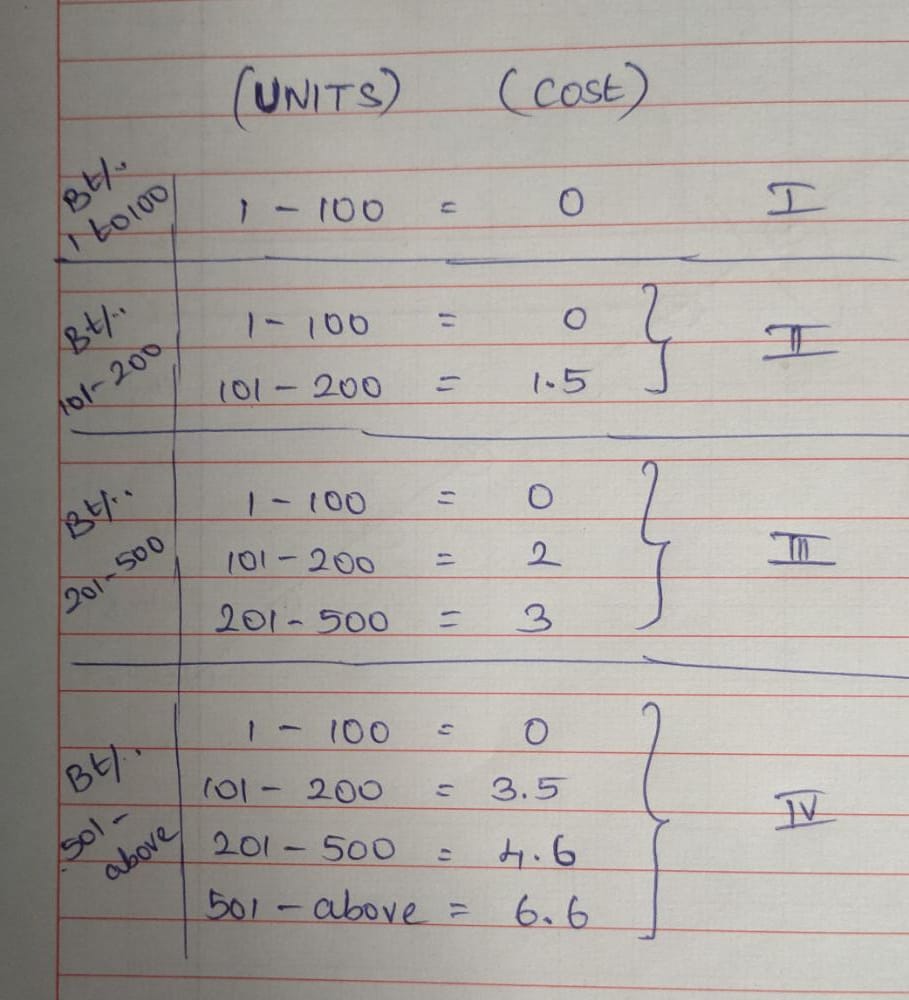 (UNITS) (Cost)
Bt/..
1 to 100
1 - 100 = 0 I
Bt/..
101 - 200
1 - 100 = 0
101 - 200 = 1.5
II
Bt/..
201 - 500
1 - 100 = 0
101 - 200 = 2
201 - 500 = 3
III
Bt/..
501 -
above
1 - 100 = 0
101 - 200 = 3.5
201 - 500 = 4.6
501 - above = 6.6
IV